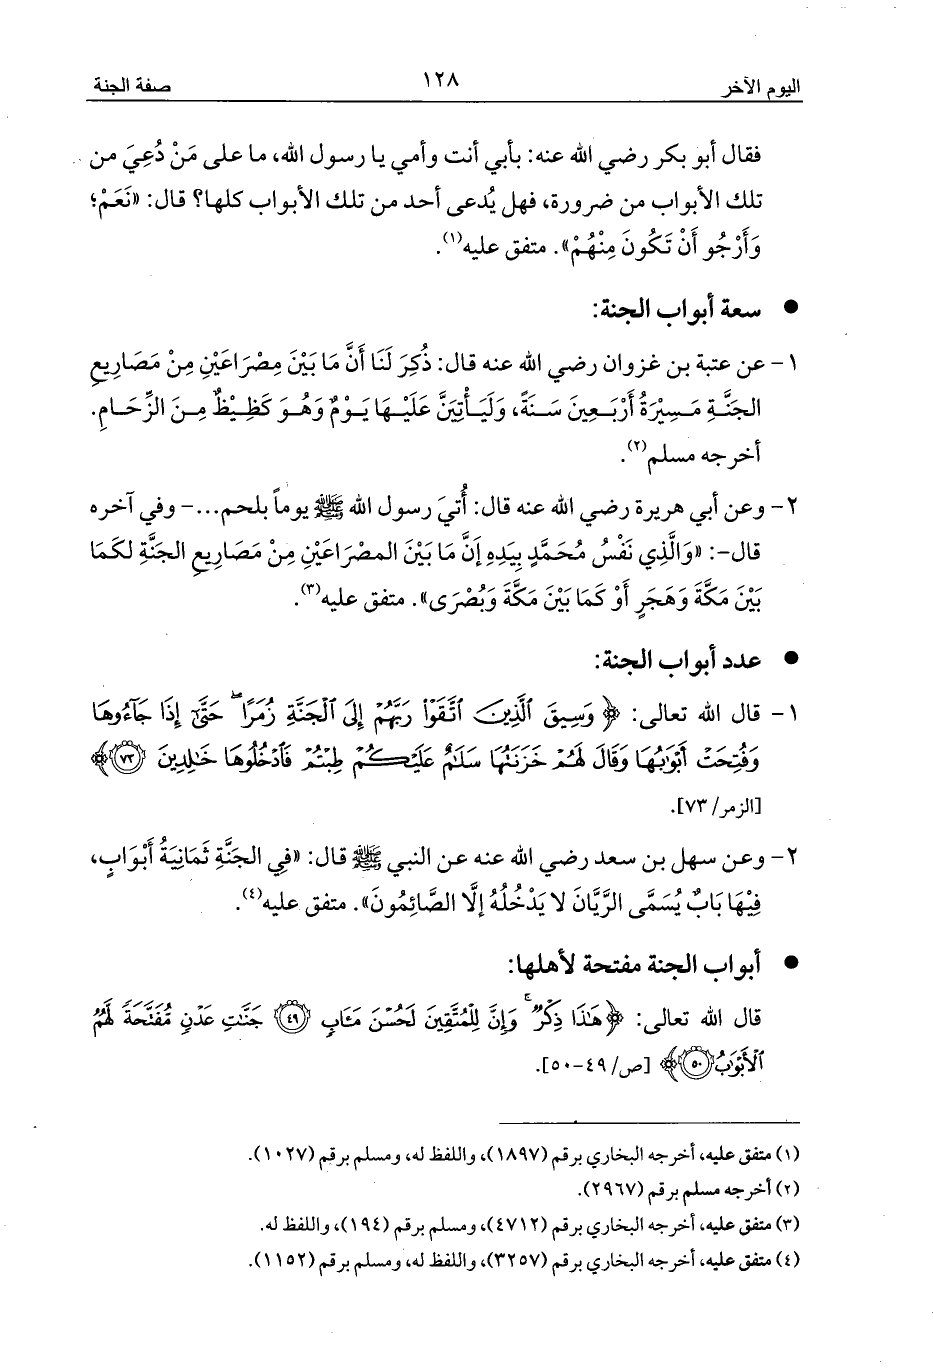 اليوم الآخر ١٢٨ صفة الجنة
فقال أبو بكر رضي الله عنه: بأبي أنت وأمي يا رسول الله، ما على مَنْ دُعِيَ من
تلك الأبواب من ضرورة، فهل يُدعى أحد من تلك الأبواب كلها؟ قال: «نَعَمْ؛
وَأَرْجُو أَنْ تَكُونَ مِنْهُمْ». متفق عليه(١).
● سعة أبواب الجنة:
١- عن عتبة بن غزوان رضي الله عنه قال: ذُكِرَ لَنَا أَنَّ مَا بَيْنَ مِصْرَاعَيْنِ مِنْ مَصَارِيعِ
الجَنَّةِ مَسِيْرَةُ أَرْبَعِينَ سَنَةً، وَلَيَأْتِيَنَّ عَلَيْهَا يَوْمٌ وَهُوَ كَظِيْظٌ مِنَ الزِّحَامِ.
أخرجه مسلم(٢).
٢- وعن أبي هريرة رضي الله عنه قال: أُتيَ رسول الله ﷺ يوماً بلحم...- وفي آخره
قال-: «وَالَّذِي نَفْسُ مُحَمَّدٍ بِيَدِهِ إِنَّ مَا بَيْنَ المصْرَاعَيْنِ مِنْ مَصَارِيعِ الجَنَّةِ لكَمَا
بَيْنَ مَكَّةَ وَهَجَرٍ أَوْ كَمَا بَيْنَ مَكَّةَ وَبُصْرَى». متفق عليه(٣).
● عدد أبواب الجنة:
١- قال الله تعالى: ﴿وَسِيقَ ٱلَّذِينَ ٱتَّقَوْا۟ رَبَّهُمْ إِلَى ٱلْجَنَّةِ زُمَرًا ۖ حَتَّىٰٓ إِذَا جَآءُوهَا
وَفُتِحَتْ أَبْوَٰبُهَا وَقَالَ لَهُمْ خَزَنَتُهَا سَلَٰمٌ عَلَيْكُمْ طِبْتُمْ فَٱدْخُلُوهَا خَٰلِدِينَ ٧٣﴾
[الزمر/ ٧٣].
٢- وعن سهل بن سعد رضي الله عنه عن النبي ﷺ قال: «فِي الجَنَّةِ ثَمَانِيَةُ أَبْوَابٍ،
فِيْهَا بَابٌ يُسَمَّى الرَّيَّانَ لا يَدْخُلُهُ إِلَّا الصَّائِمُونَ». متفق عليه(٤).
● أبواب الجنة مفتحة لأهلها:
قال الله تعالى: ﴿هَٰذَا ذِكْرٌ ۚ وَإِنَّ لِلْمُتَّقِينَ لَحُسْنَ مَـَٔابٍ ٤٩ جَنَّٰتِ عَدْنٍ مُّفَتَّحَةً لَّهُمُ
ٱلْأَبْوَٰبُ ٥٠﴾ [ص/ ٤٩-٥٠].
(١) متفق عليه، أخرجه البخاري برقم (١٨٩٧)، واللفظ له، ومسلم برقم (١٠٢٧).
(٢) أخرجه مسلم برقم (٢٩٦٧).
(٣) متفق عليه، أخرجه البخاري برقم (٤٧١٢)، ومسلم برقم (١٩٤)، واللفظ له.
(٤) متفق عليه، أخرجه البخاري برقم (٣٢٥٧)، واللفظ له، ومسلم برقم (١١٥٢).